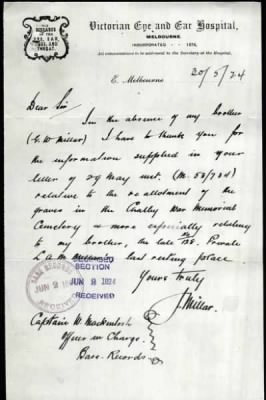 FOR
DISEASES
OF THE
EYE, EAR,
NOSE, AND
THROAT.
Victorian Eye and Ear Hospital,
MELBOURNE.
INCORPORATED - 1876.
All communications to be addressed to the Secretary of the Hospital.
E. Melbourne
20/5/24
Dear Sir
In the absence of my brother
(E. W. Millar) I have to thank you for
the information supplied in your
letter of 29 May
relative to the re-allotment of the
graves in the War Memorial
Cemetery & more especially relating
to my brother, the late Private
L A M last resting place
Yours truly
J. Millar.
BASE RECORDS
JUN 2
SECTION
JUN 2 1924
RECEIVED
Captain W. Mackintosh
Officer in Charge.
Base Records